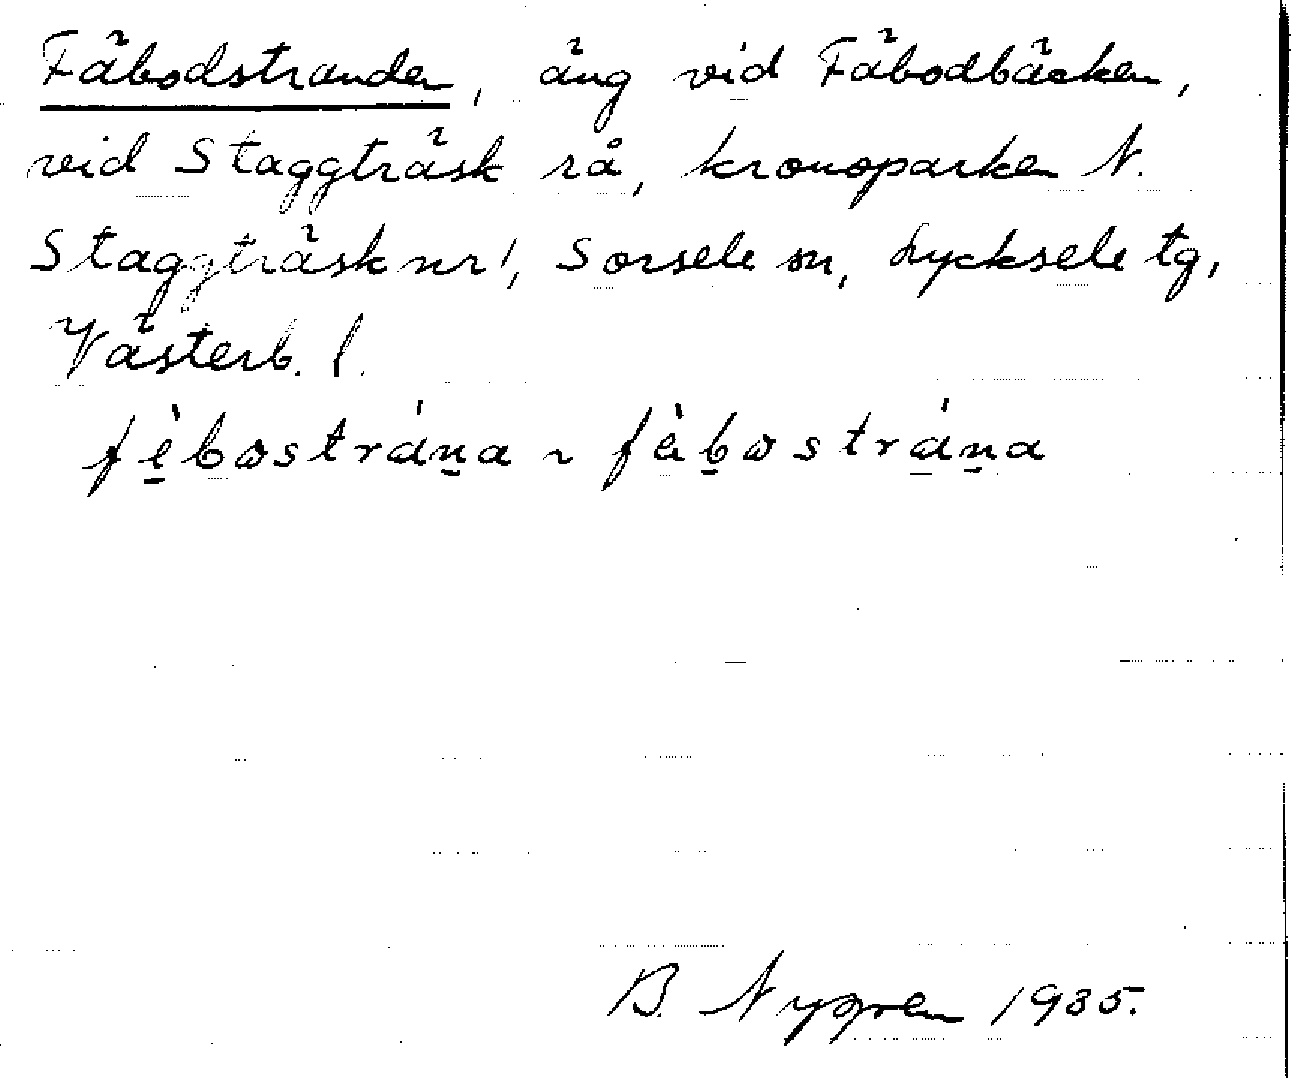 Fäbodstranden, äng vid Fäbodbäcken,
vid Staggträsk rå, kronoparken N.
Staggträsk nr 1, Sorsele sn, Lycksele tg,
Västerb. l.
fè̱bɷstráṉa ~ fàḇɷstrá̱ṉa
B. Nygren 1935.